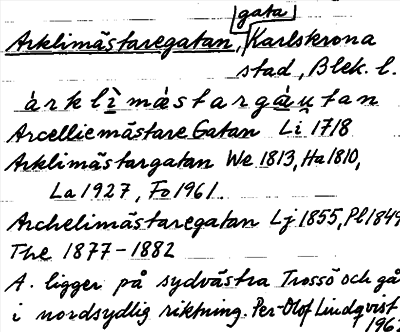 gata
Arklimästaregatan, Karlskrona
stad, Blek. l.
àrklìmästargàu̩tan
Arcelliemästare Gatan Li 1718
Arklimästargatan We 1813, Ha 1810,
La 1927, Fo 1961.
Archelimästaregatan Lj 1855, Pl 1849
The 1877-1882
A. ligger på sydvästra Trossö och gå
i nordsydlig riktning. Per-Olof Lindqvist
1962